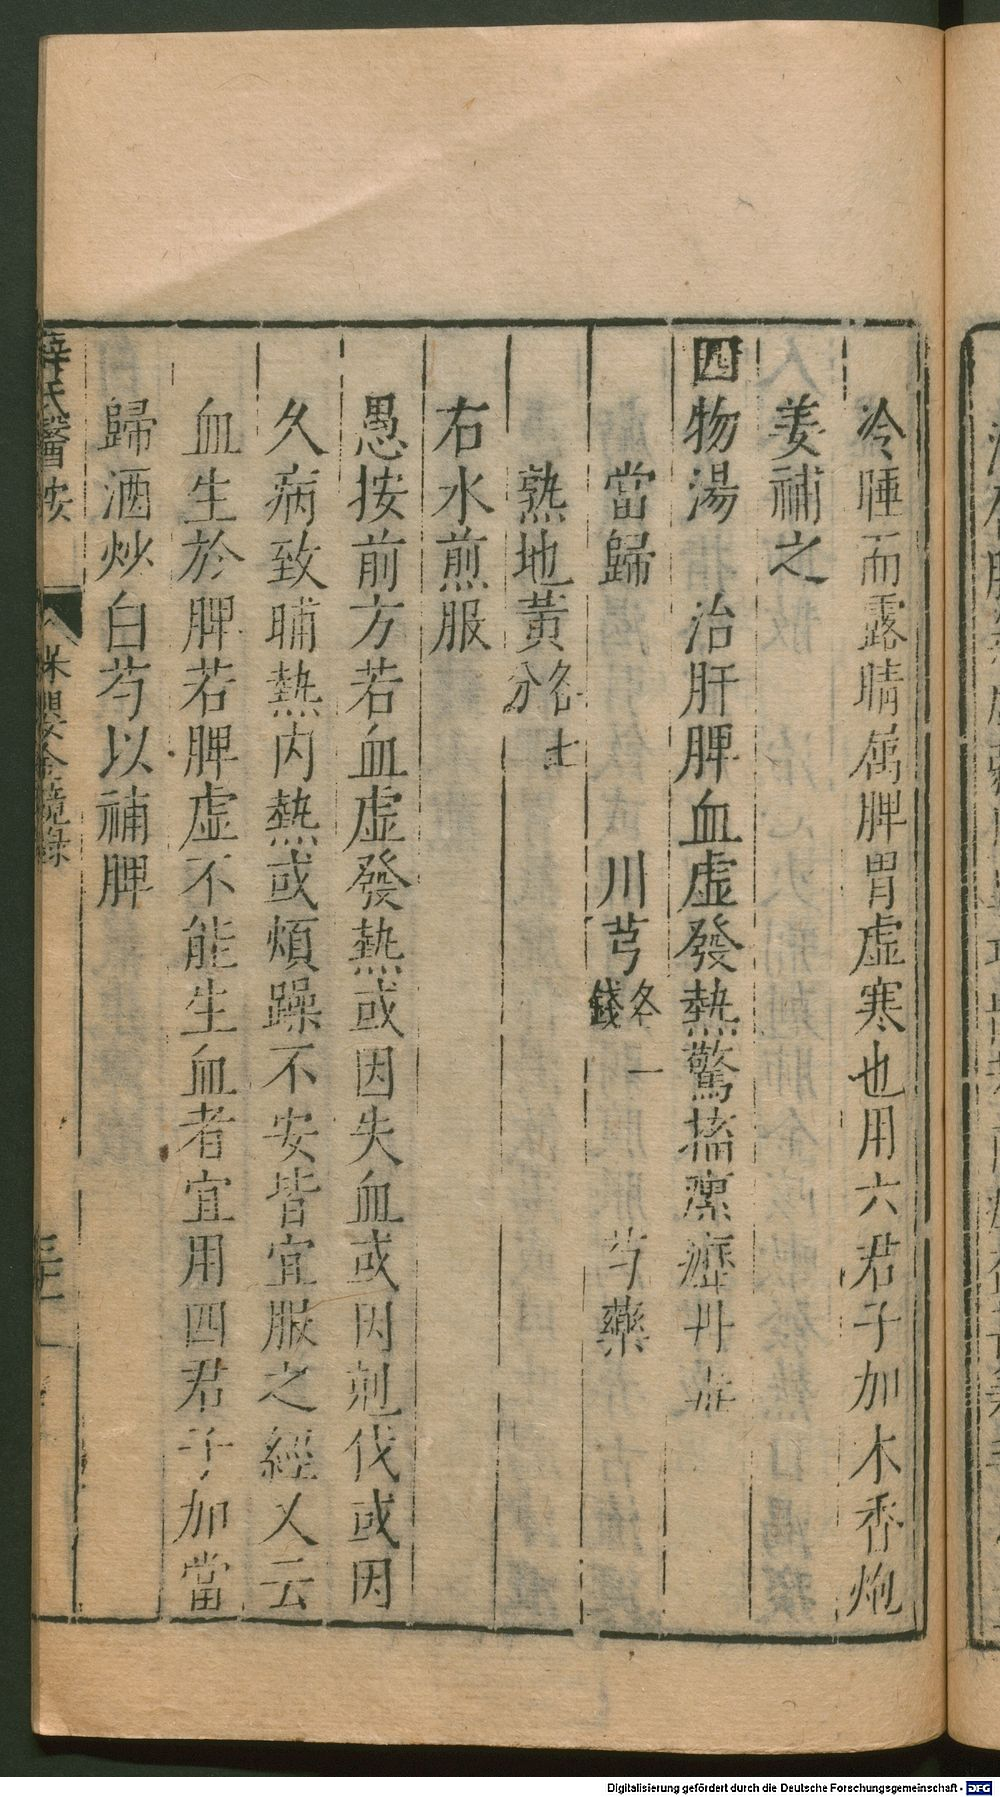 冷唾而露睛属脾胃虚寒也用六君子加木香炮
姜補之
四物湯　治肝脾血虚發熱驚搐瘰癧丹毒
當歸　川芎各一錢　芍藥
熟地黄各七分
右水煎服
愚按前方若血虚發熱或因失血或因剋伐或因
久病致晡熱内熱或煩躁不安皆宜服之經又云
血生於脾若脾虚不能生血者宜用四君子加當
歸酒炒白芍以補脾
薛氏醫按　保嬰金鏡錄
Digitalisierung gefördert durch die Deutsche Forschungsgemeinschaft - DFG